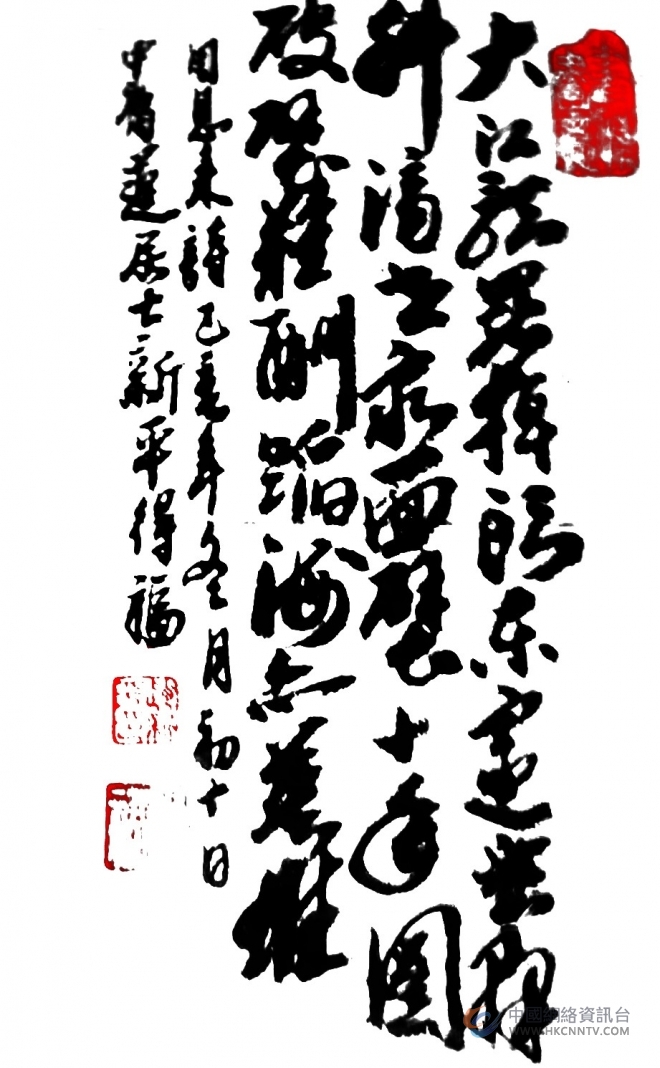 大江歌罷掉頭東邃密群
科濟世窮面壁十年圖
破壁難酬蹈海亦英雄
周恩來詩己亥年冬月初十日
居士新平得福
中國網絡資訊台
WWW.HKCNNTV.COM